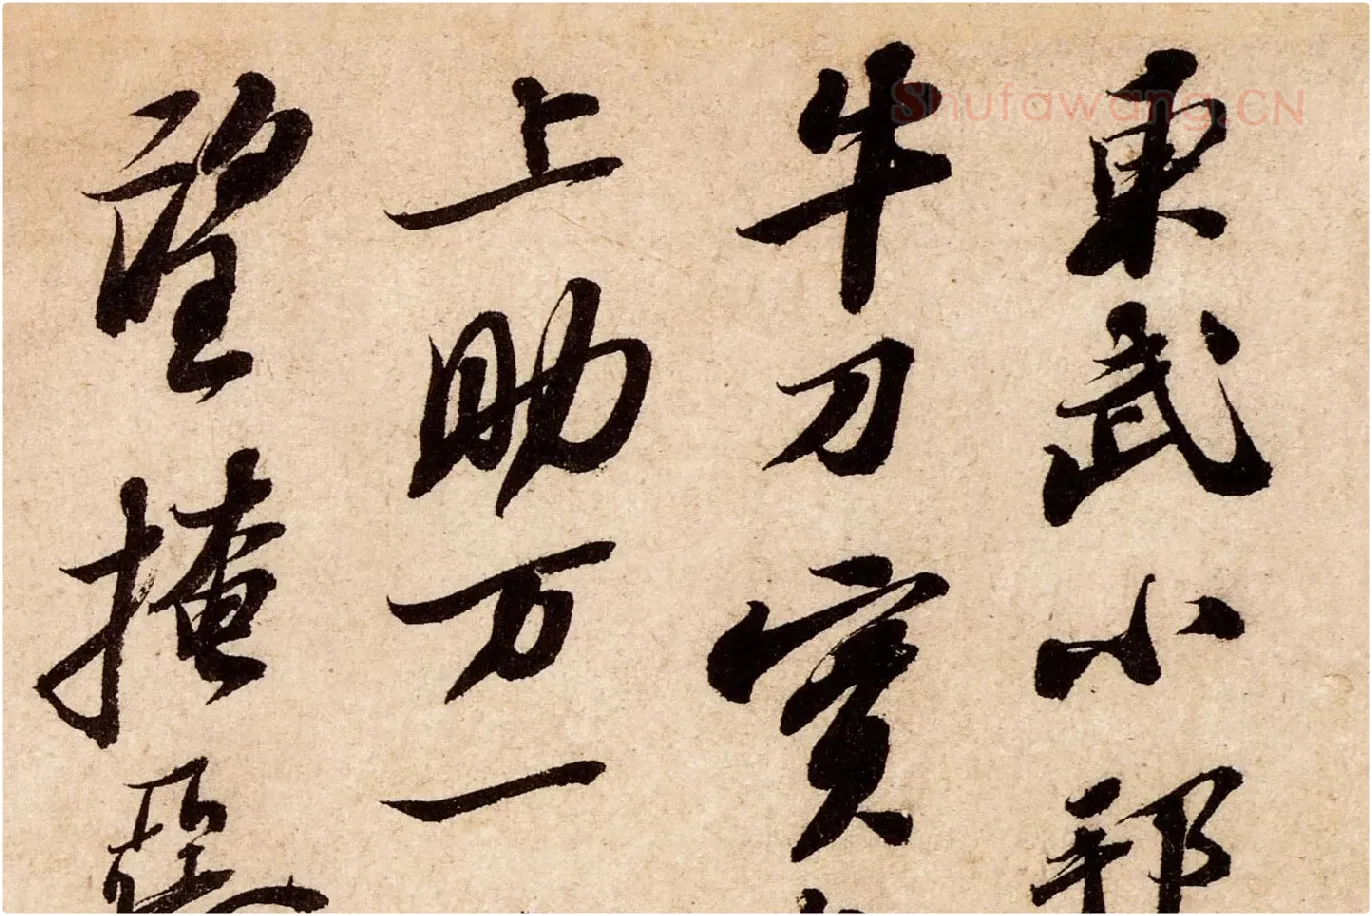 東武小邦
牛刀實
上助万一
望掩惡
Shufawang.CN